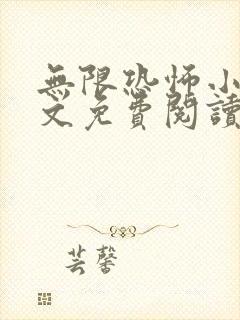 無限恐怖小
文免費閱讀
芸馨